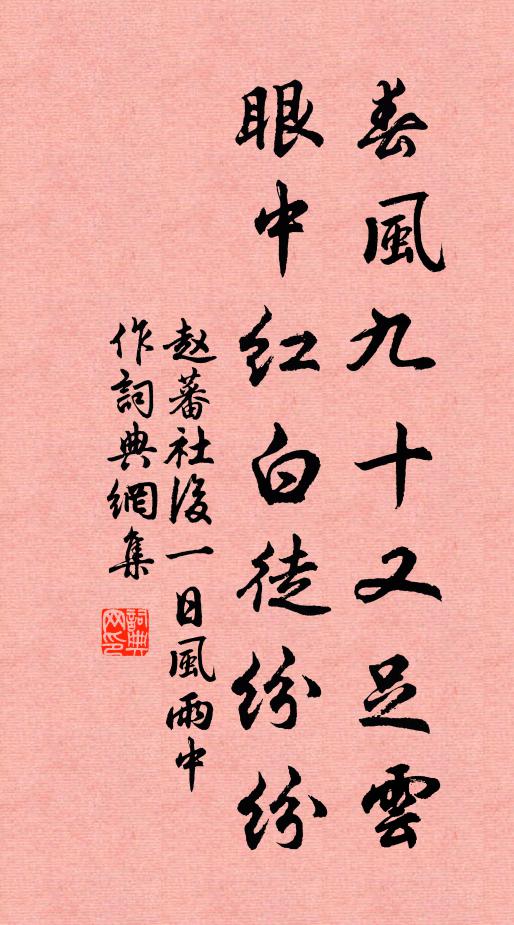 春風九十又足雲
眼中紅白徒紛紛
赵蕃社後一日風雨中
作詞典網集
詞典
网印